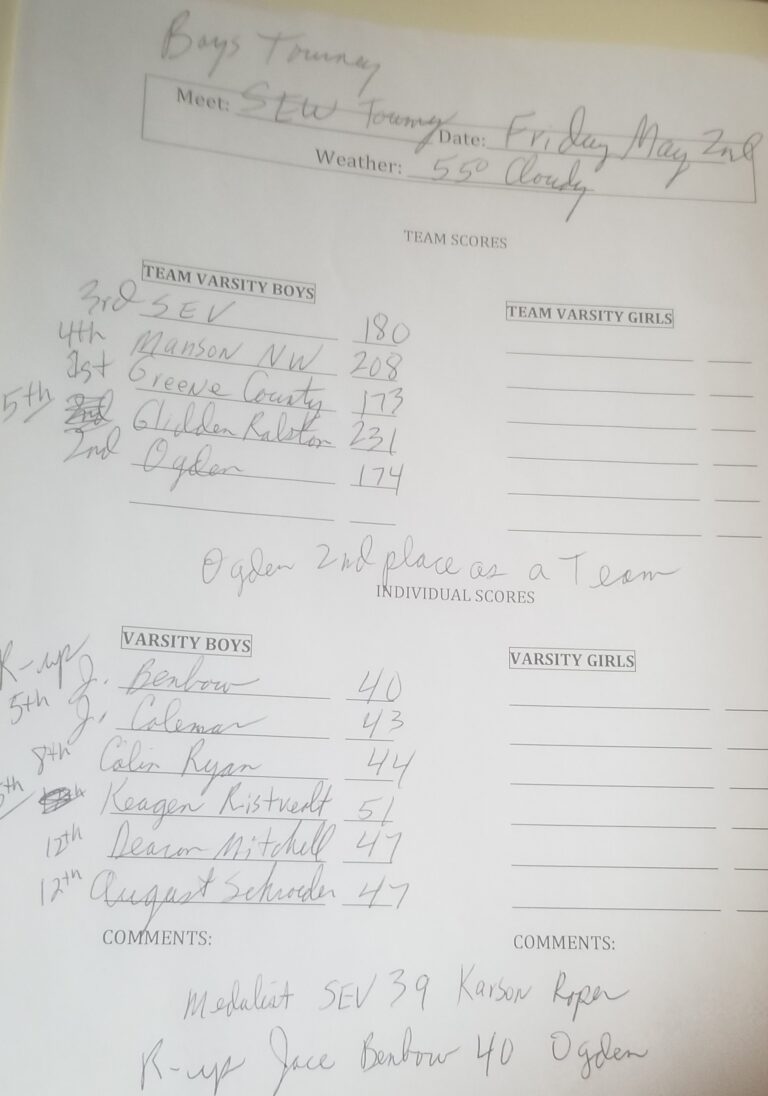 Boys Tourney
Meet: SEW Tourny Date: Friday May 2nd
Weather: 55° Cloudy
TEAM SCORES
TEAM VARSITY BOYS
TEAM VARSITY GIRLS
3rd SEV 180
4th Manson NW 208
1st Greene County 173
5th Glidden Ralston 231
2nd Ogden 174
Ogden 2nd place as a Team
INDIVIDUAL SCORES
VARSITY BOYS
VARSITY GIRLS
R-up J. Benbow 40
5th J. Coleman 43
8th Colin Ryan 44
Keagen Ristvedt 51
12th Deacon Mitchell 47
12th August Schroeder 47
COMMENTS:
COMMENTS:
Medalist SEV 39 Karson Roper
R-up Jace Benbow 40 Ogden